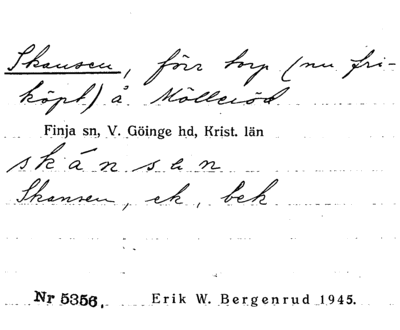 Skansen, förr torp (nu fri-
köpt) å Mölleröd
Finja sn, V. Göinge hd, Krist. län
skánsen
Skansen, ek, bek
Nr 5356. Erik W. Bergenrud 1945.